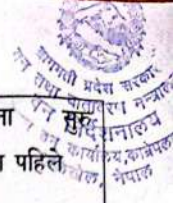 बागमती प्रदेश सरकार
वन तथा वातावरण मन्त्रालय
वन निर्देशनालय
वन कार्यालय, काभ्रेपलाञ्चोक
नेपाल
ना सुरु
पहिले